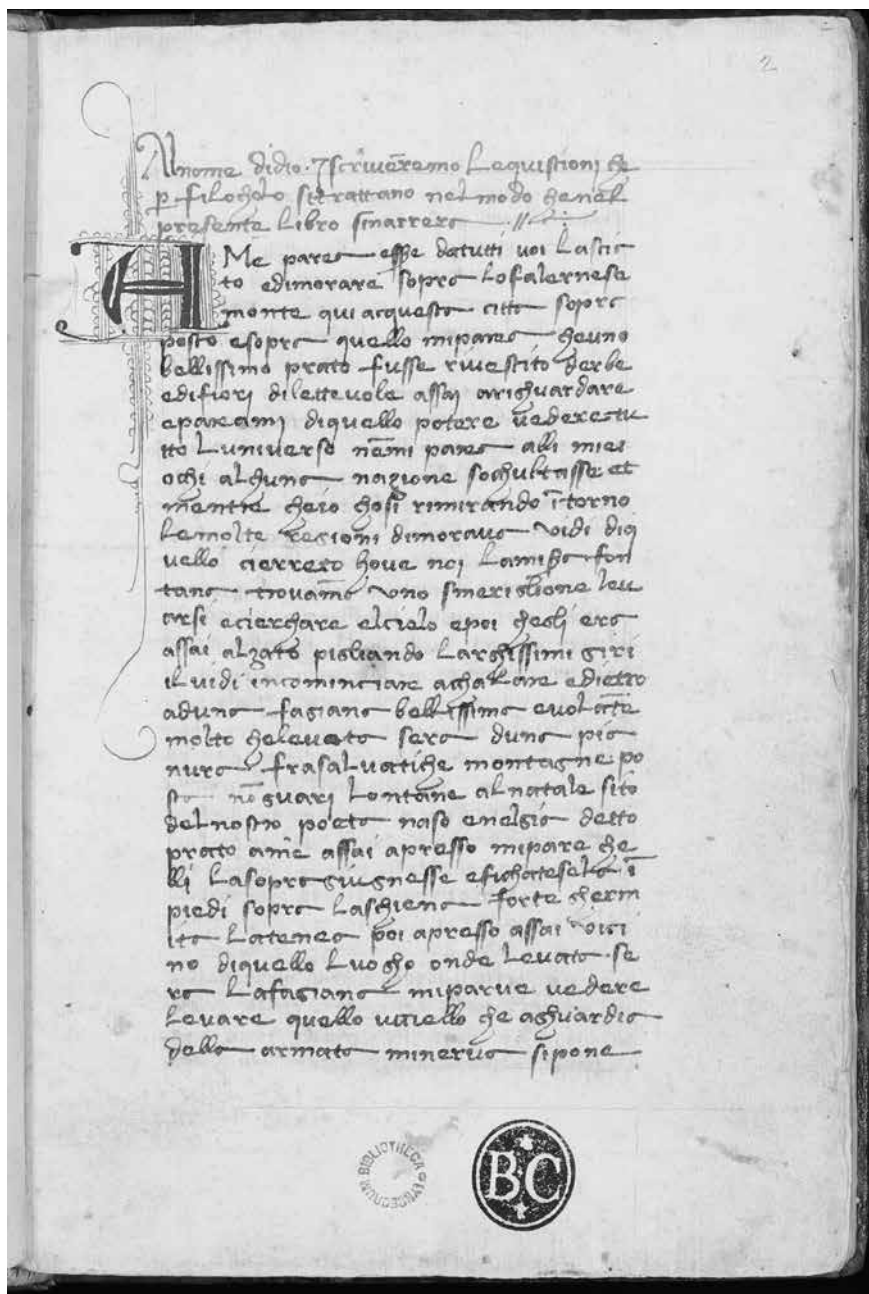 2
Al nome didio · Iscriveremo Lequistioni che
p filocholo sitrattano nelmodo chenel
presente Libro sinarrera
A Me parea esse datutti voi Lascia
to edimorare sopra Lofalernese
monte qui aquesta citta sopra
posto esopra quello miparea cheuno
bellissimo prato fusse rivestito derbe
edifiori dilettevole assai arisghuardare
epareami diquello potere vederetu
tto Luniverso nēmi parea alli miei
ochi alchuna nazione sochultasse et
mentre cheio chosi rimirando ītorno
Lemolte regioni dimorava vidi diq
vello cierreto hove noi Lamisera fon
tana trovamo uno smeriglione lev
arsi ecierchare elcielo epoi chegli era
assai alzato pigliando Larghissimi giri
iLvidi incominciare acchalare edietro
aduna fagiana bellissima evolāte
molto chelevata sera duna pia
nura frasalvatiche montagne po
sta nō guari Lontane alnatale sito
delnostro poeta naso enelgia detto
prato ame assai apresso mipare che
lli Lasopragiugnesse efichateseLa ī
piedi sopra Laschiena forte gherm
ita Latenea poi apresso assai vici
no diquello Luogho onde Levata · se
ra Lafagiana miparve vedere
Levare quello ucciello che aghuardia
della armata minerva sipone
BIBLIOTHECA
B·C